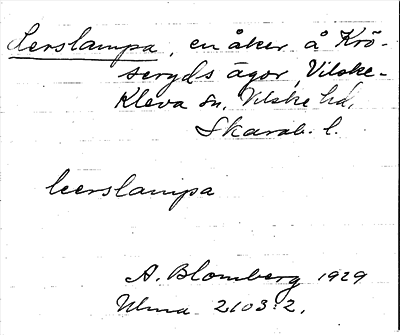 Lerslampa, en åker å Krö-
seryds ägor, Vilske-
Kleva sn. Vilske hd.
Skarab. l.
leerslampa
A. Blomberg 1929
Ulma 2103:2.